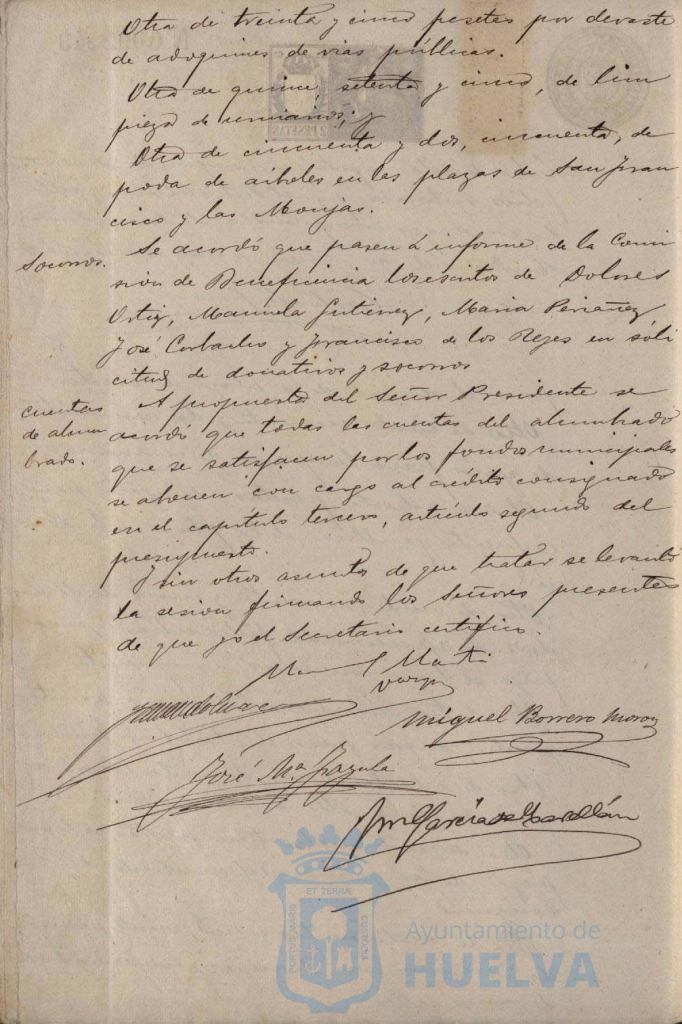 Otra de treinta y cinco pesetas por devaste
de adoquines de vias públicas.
Otra de quince, setenta y cinco, de lim
pieza de urinarios; y
Otra de cincuenta y dos, cincuenta, de
poda de arboles en las plazas de San Fran
cisco y las Monjas.
Socorros.
Se acordó que pasen á informe de la Comi
sión de Beneficencia los escritos de Dolores
Ortiz, Manuela Gutierrez, Maria Periañez
José Corbacho y Francisco de los Reyes en sóli
citud de donativos y socorros
Cuentas
de alum
brado.
A propuesta del Señor Presidente se
acordó que todas las cuentas del alumbrado
que se satisfacen por los fondos municipales
se abonen con cargo al crédito consignado
en el capitulo tercero, artículo segundo del
presupuesto.
Y sin otros asuntos de que tratar se levantó
la sesion firmando los Señores presentes
de que yo el Secretario certifico.
Miguel Borrero Moron
José Mª
García de
2 PESETAS
ET TERRÆ
PORTUS MARIS
CUSTODIA
Ayuntamiento de
HUELVA